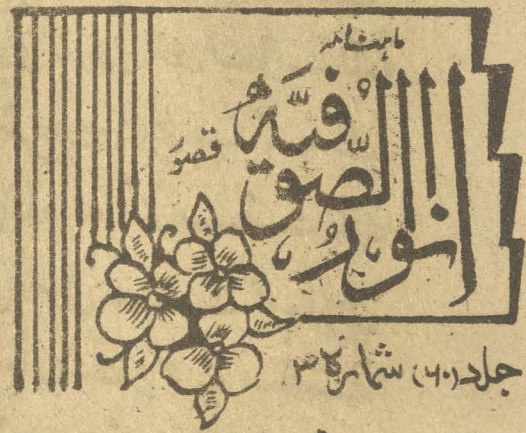 ماہنامہ
انوار الصّوفیّہ
قصور
جلد (۶۰) شمارہ ۳